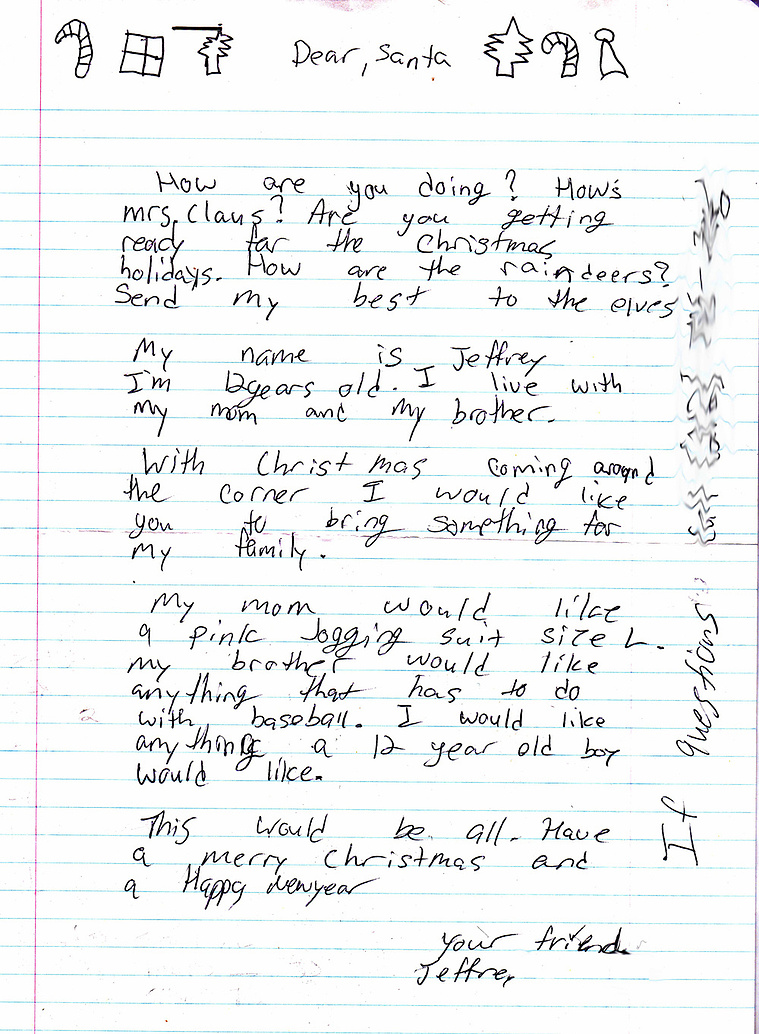 Dear, Santa
How are you doing? How's
mrs. Claus? Are you getting
ready for the Christmas
holidays. How are the raindeers?
Send my best to the elves
My name is Jeffrey
I'm 12years old. I live with
my mom and my brother.
With Christmas coming around
the corner I would like
you to bring something for
my family.
My mom would like
a pink Jogging suit size L.
my brother would like
anything that has to do
with baseball. I would like
anything a 12 year old boy
would like.
This would be all. Have
a merry Christmas and
a Happy Newyear
your friend
Jeffrey
If questions